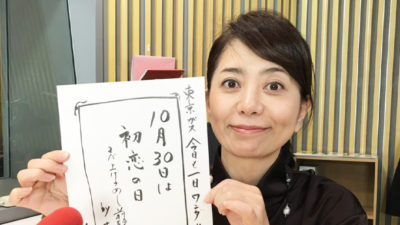 東京ガス 今日も一日ワラ
10月30日は
初恋の日
まだ上げそめし前
by